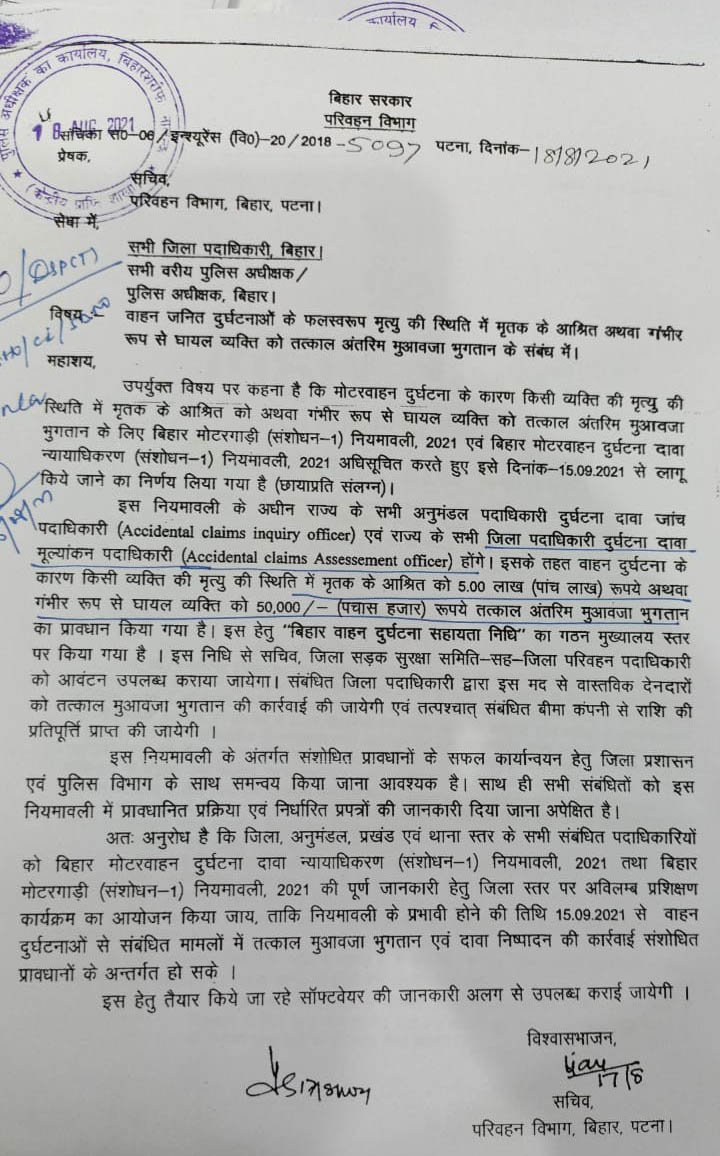 कार्यालय
पुलिस अधीक्षक का कार्यालय, बिहारशरीफ
18 AUG 2021
(केन्द्रीय प्राप्ति शाखा)
बिहार सरकार
परिवहन विभाग
संचिका सं0-06/इन्श्यूरेंस (वि0)-20/2018-5097 पटना, दिनांक-18/8/2021
प्रेषक,
सचिव,
परिवहन विभाग, बिहार, पटना।
सेवा में,
सभी जिला पदाधिकारी, बिहार।
/DSP(T)
सभी वरीय पुलिस अधीक्षक/
पुलिस अधीक्षक, बिहार।
विषय:- वाहन जनित दुर्घटनाओं के फलस्वरूप मृत्यु की स्थिति में मृतक के आश्रित अथवा गंभीर
रूप से घायल व्यक्ति को तत्काल अंतरिम मुआवजा भुगतान के संबंध में।
महाशय,
उपर्युक्त विषय पर कहना है कि मोटरवाहन दुर्घटना के कारण किसी व्यक्ति की मृत्यु की
स्थिति में मृतक के आश्रित को अथवा गंभीर रूप से घायल व्यक्ति को तत्काल अंतरिम मुआवजा
भुगतान के लिए बिहार मोटरगाड़ी (संशोधन-1) नियमावली, 2021 एवं बिहार मोटरवाहन दुर्घटना दावा
न्यायाधिकरण (संशोधन-1) नियमावली, 2021 अधिसूचित करते हुए इसे दिनांक-15.09.2021 से लागू
किये जाने का निर्णय लिया गया है (छायाप्रति संलग्न)।
इस नियमावली के अधीन राज्य के सभी अनुमंडल पदाधिकारी दुर्घटना दावा जांच
पदाधिकारी (Accidental claims inquiry officer) एवं राज्य के सभी जिला पदाधिकारी दुर्घटना दावा
मूल्यांकन पदाधिकारी (Accidental claims Assessement officer) होंगे। इसके तहत वाहन दुर्घटना के
कारण किसी व्यक्ति की मृत्यु की स्थिति में मृतक के आश्रित को 5.00 लाख (पांच लाख) रूपये अथवा
गंभीर रूप से घायल व्यक्ति को 50,000/- (पचास हजार) रूपये तत्काल अंतरिम मुआवजा भुगतान
का प्रावधान किया गया है। इस हेतु "बिहार वाहन दुर्घटना सहायता निधि" का गठन मुख्यालय स्तर
पर किया गया है । इस निधि से सचिव, जिला सड़क सुरक्षा समिति-सह-जिला परिवहन पदाधिकारी
को आवंटन उपलब्ध कराया जायेगा। संबंधित जिला पदाधिकारी द्वारा इस मद से वास्तविक देनदारों
को तत्काल मुआवजा भुगतान की कार्रवाई की जायेगी एवं तत्पश्चात् संबंधित बीमा कंपनी से राशि की
प्रतिपूर्ति प्राप्त की जायेगी ।
इस नियमावली के अंतर्गत संशोधित प्रावधानों के सफल कार्यान्वयन हेतु जिला प्रशासन
एवं पुलिस विभाग के साथ समन्वय किया जाना आवश्यक है। साथ ही सभी संबंधितों को इस
नियमावली में प्रावधानित प्रक्रिया एवं निर्धारित प्रपत्रों की जानकारी दिया जाना अपेक्षित है।
अतः अनुरोध है कि जिला, अनुमंडल, प्रखंड एवं थाना स्तर के सभी संबंधित पदाधिकारियों
को बिहार मोटरवाहन दुर्घटना दावा न्यायाधिकरण (संशोधन-1) नियमावली, 2021 तथा बिहार
मोटरगाड़ी (संशोधन-1) नियमावली, 2021 की पूर्ण जानकारी हेतु जिला स्तर पर अविलम्ब प्रशिक्षण
कार्यक्रम का आयोजन किया जाय, ताकि नियमावली के प्रभावी होने की तिथि 15.09.2021 से वाहन
दुर्घटनाओं से संबंधित मामलों में तत्काल मुआवजा भुगतान एवं दावा निष्पादन की कार्रवाई संशोधित
प्रावधानों के अन्तर्गत हो सके ।
इस हेतु तैयार किये जा रहे सॉफ्टवेयर की जानकारी अलग से उपलब्ध कराई जायेगी ।
विश्वासभाजन,
17/8
सचिव,
परिवहन विभाग, बिहार, पटना।